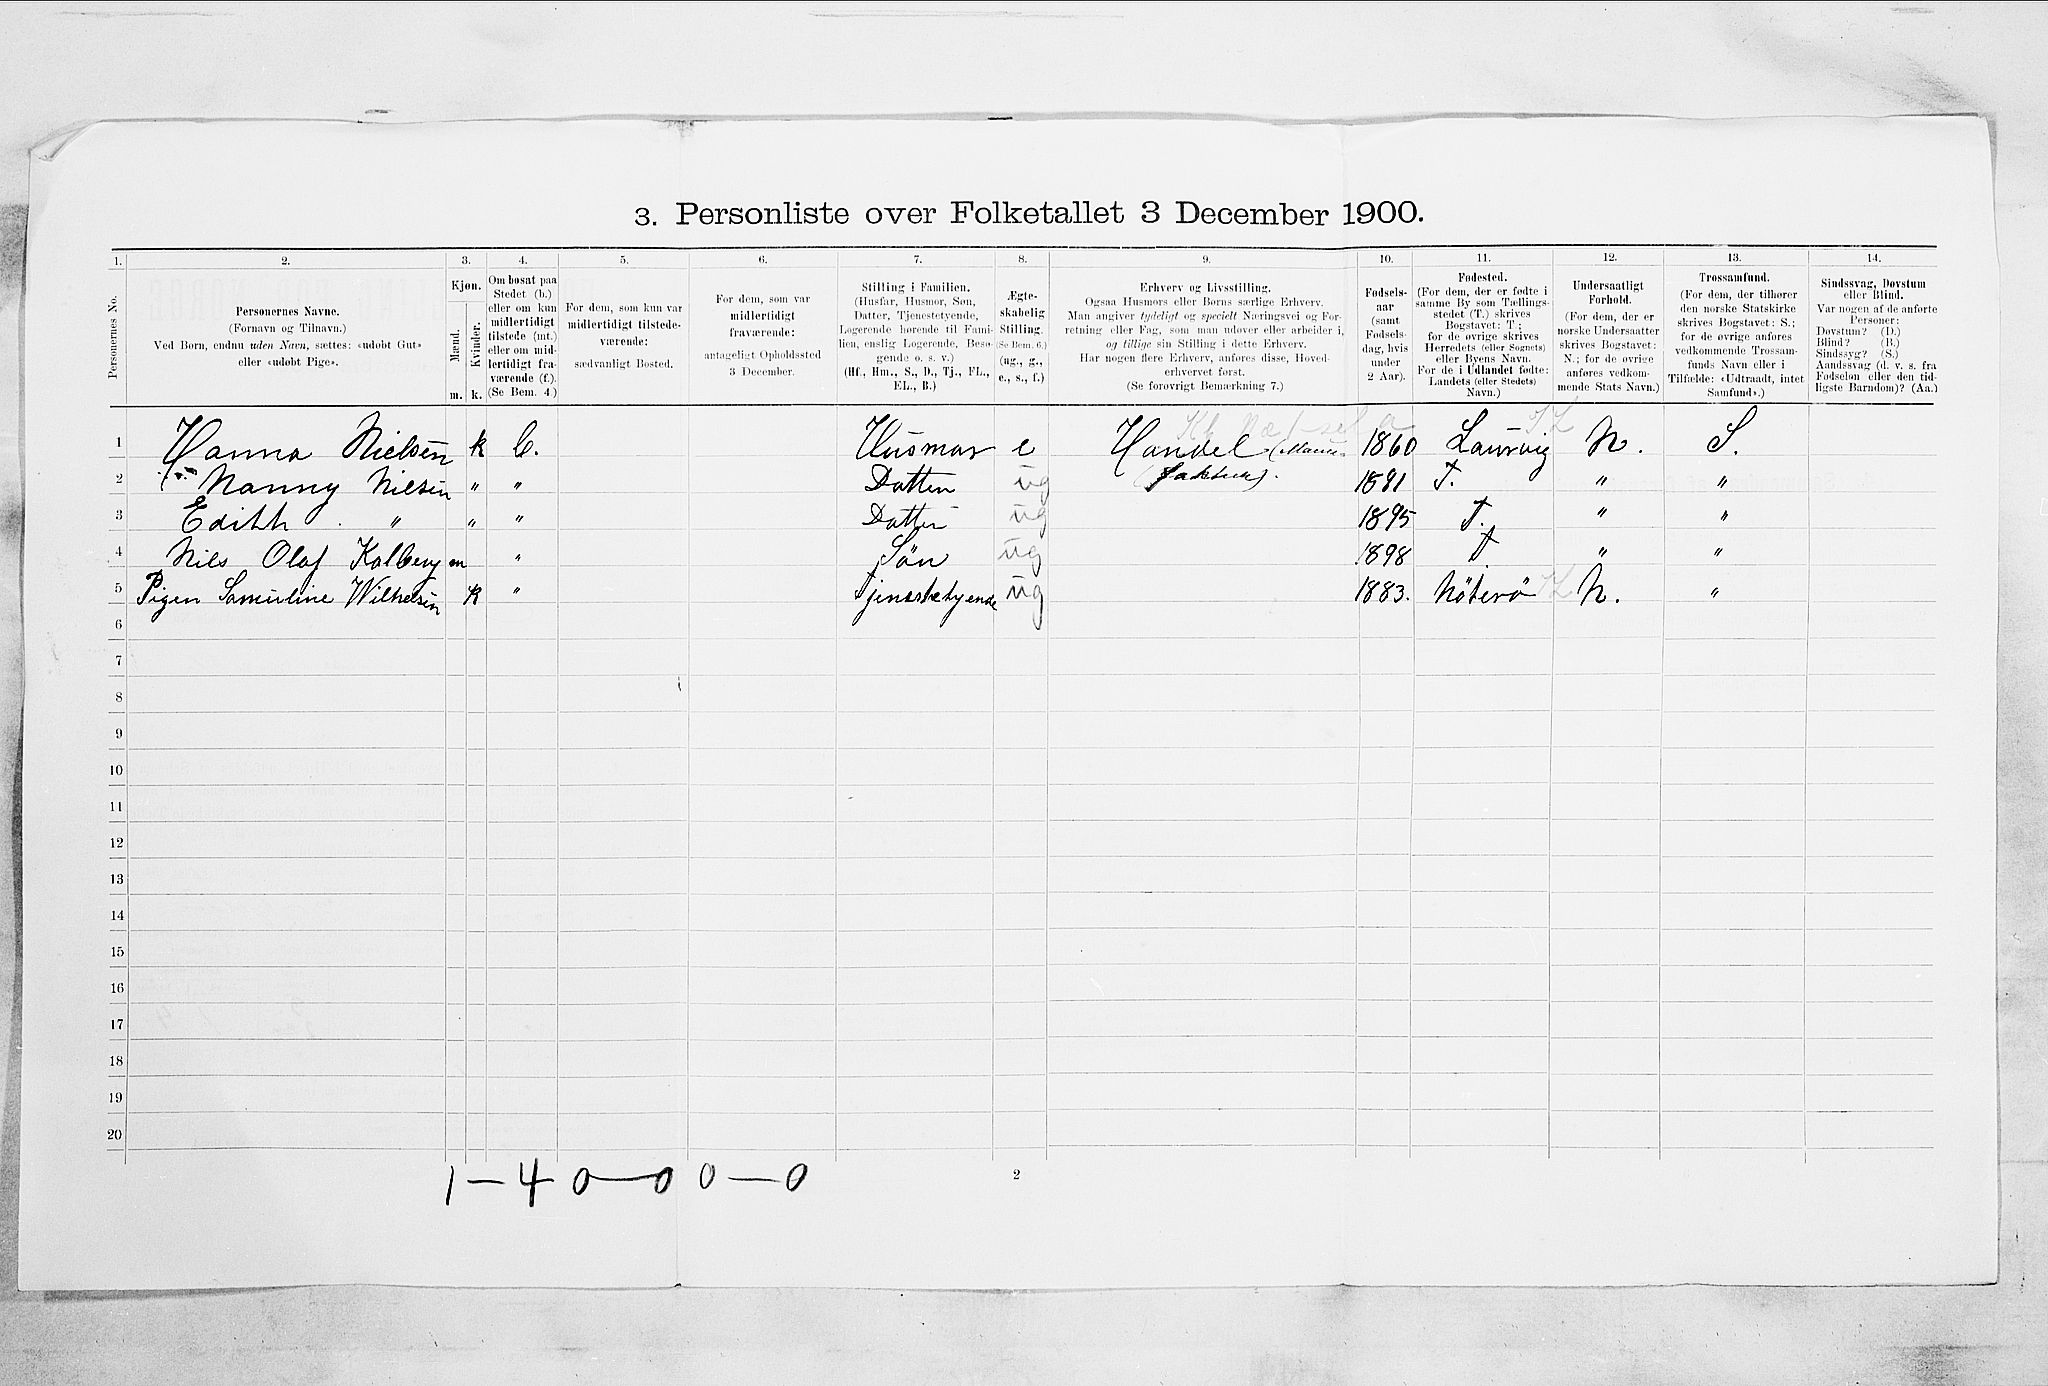 3. Personliste over Folketallet 3 December 1900.
1. 2. 3. 4. 5. 6. 7. 8. 9. 10. 11. 12. 13. 14.
Personernes No.
Personernes Navne.
(Fornavn og Tilnavn.)
Ved Børn, endnu uden Navn, sættes: «udøbt Gut»
eller «udøbt Pige».
Kjøn.
Mænd.
Kvinder.
m. k.
Om bosat paa
Stedet (b.)
eller om kun
midlertidigt
tilstede (mt.)
eller om mid-
lertidigt fra-
værende (f.).
(Se Bem. 4.)
For dem, som kun var
midlertidigt tilstede-
værende:
sædvanligt Bosted.
For dem, som var
midlertidigt
fraværende:
antageligt Opholdssted
3 December.
Stilling i Familien.
(Husfar, Husmor, Søn,
Datter, Tjenestetyende,
Logerende hørende til Fami-
lien, enslig Logerende, Besø-
gende o. s. v.)
(Hf., Hm., S., D., Tj., FL.,
EL., B.)
Ægte-
skabelig
Stilling.
(Se Bem. 6.)
(ug., g.,
e., s., f.)
Erhverv og Livsstilling.
Ogsaa Husmors eller Børns særlige Erhverv.
Man angiver tydeligt og specielt Næringsvei og For-
retning eller Fag, som man udøver eller arbeider i,
og tillige sin Stilling i dette Erhverv.
Har nogen flere Erhverv, anføres disse, Hoved-
erhvervet først.
(Se forøvrigt Bemærkning 7.)
Fødsels-
aar
(samt
Fødsels-
dag, hvis
under
2 Aar).
Fødested.
(For dem, der er fødte i
samme By som Tællings-
stedet (T.) skrives
Bogstavet: T.;
for de øvrige skrives
Herredets (eller Sognets)
eller Byens Navn.
For de i Udlandet fødte:
Landets (eller Stedets)
Navn.)
Undersaatligt
Forhold.
(For dem, der er
norske Undersaatter
skrives Bogstavet:
N.; for de øvrige
anføres vedkom-
mende Stats Navn.)
Trossamfund.
(For dem, der tilhører
den norske Statskirke
skrives Bogstavet: S.;
for de øvrige anføres
vedkommende Trossam-
funds Navn eller i
Tilfælde: «Udtraadt, intet
Samfund».)
Sindssvag, Døvstum
eller Blind.
Var nogen af de anførte
Personer:
Døvstum? (D.)
Blind? (B.)
Sindssyg? (S.)
Aandssvag (d. v. s. fra
Fødselen eller den tid-
ligste Barndom)? (Aa.)
1 Hanna Nielsen k b. Husmor e Handel (Manu- 1860 Laurvig N. S.
faktur).
2 Nanny Nilsen " " Datter ug 1881 T. " "
3 Edith " " " Datter ug 1895 T. " "
4 Nils Olaf Kalberg m " Søn ug 1898 T " "
5 Pigen Samuline Wilhelsen k " Tjenestetyende ug 1883. Nöterö N. "
6
7
8
9
10
11
12
13
14
15
16
17
18
19
20
1-4 0-0 0-0
2